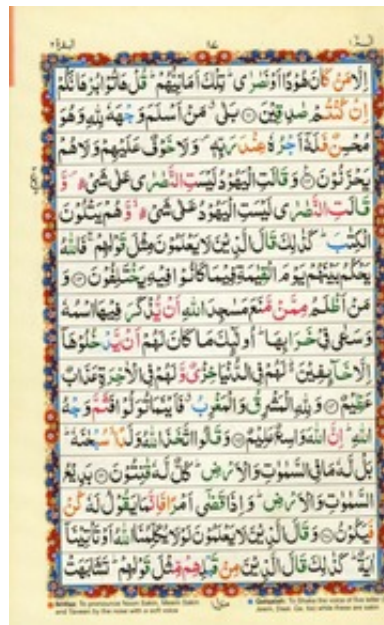 البقرة ٢ ١٧ الٓمّٓ ١
اِلَّا مَنْ كَانَ هُوْدًا اَوْ نَصٰرٰى ؕ تِلْكَ اَمَانِيُّهُمْ ؕ قُلْ هَاتُوْا بُرْهَانَكُمْ
اِنْ كُنْتُمْ صٰدِقِيْنَ ۝ بَلٰى ۗ مَنْ اَسْلَمَ وَجْهَهٗ لِلّٰهِ وَهُوَ
مُحْسِنٌ فَلَهٗٓ اَجْرُهٗ عِنْدَ رَبِّهٖ ۪ وَلَا خَوْفٌ عَلَيْهِمْ وَلَا هُمْ
يَحْزَنُوْنَ ۝ وَقَالَتِ الْيَهُوْدُ لَيْسَتِ النَّصٰرٰى عَلٰى شَيْءٍ ۪ وَّ
قَالَتِ النَّصٰرٰى لَيْسَتِ الْيَهُوْدُ عَلٰى شَيْءٍ ۙ وَّهُمْ يَتْلُوْنَ
الْكِتٰبَ ؕ كَذٰلِكَ قَالَ الَّذِيْنَ لَا يَعْلَمُوْنَ مِثْلَ قَوْلِهِمْ ۚ فَاللّٰهُ
يَحْكُمُ بَيْنَهُمْ يَوْمَ الْقِيٰمَةِ فِيْمَا كَانُوْا فِيْهِ يَخْتَلِفُوْنَ ۝ وَ
مَنْ اَظْلَمُ مِمَّنْ مَّنَعَ مَسٰجِدَ اللّٰهِ اَنْ يُّذْكَرَ فِيْهَا اسْمُهٗ
وَسَعٰى فِيْ خَرَابِهَا ؕ اُولٰٓئِكَ مَا كَانَ لَهُمْ اَنْ يَّدْخُلُوْهَآ
اِلَّا خَآئِفِيْنَ ؕ لَهُمْ فِي الدُّنْيَا خِزْيٌ وَّلَهُمْ فِي الْاٰخِرَةِ عَذَابٌ
عَظِيْمٌ ۝ وَلِلّٰهِ الْمَشْرِقُ وَالْمَغْرِبُ ۗ فَاَيْنَمَا تُوَلُّوْا فَثَمَّ وَجْهُ
اللّٰهِ ؕ اِنَّ اللّٰهَ وَاسِعٌ عَلِيْمٌ ۝ وَقَالُوا اتَّخَذَ اللّٰهُ وَلَدًا ۙ سُبْحٰنَهٗ ؕ
بَلْ لَّهٗ مَا فِي السَّمٰوٰتِ وَالْاَرْضِ ؕ كُلٌّ لَّهٗ قٰنِتُوْنَ ۝ بَدِيْعُ
السَّمٰوٰتِ وَالْاَرْضِ ؕ وَاِذَا قَضٰٓى اَمْرًا فَاِنَّمَا يَقُوْلُ لَهٗ كُنْ
فَيَكُوْنُ ۝ وَقَالَ الَّذِيْنَ لَا يَعْلَمُوْنَ لَوْلَا يُكَلِّمُنَا اللّٰهُ اَوْ تَاْتِيْنَآ
اٰيَةٌ ؕ كَذٰلِكَ قَالَ الَّذِيْنَ مِنْ قَبْلِهِمْ مِّثْلَ قَوْلِهِمْ ؕ تَشَابَهَتْ
منزل